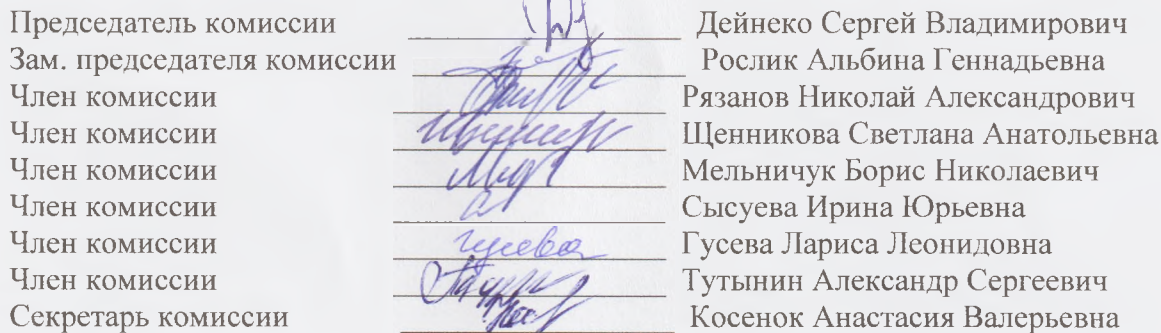 Председатель комиссии Дейнеко Сергей Владимирович
Зам. председателя комиссии Рослик Альбина Геннадьевна
Член комиссии Рязанов Николай Александрович
Член комиссии Щенникова Светлана Анатольевна
Член комиссии Мельничук Борис Николаевич
Член комиссии Сысуева Ирина Юрьевна
Член комиссии Гусева Гусева Лариса Леонидовна
Член комиссии Тутынин Александр Сергеевич
Секретарь комиссии Косенок Анастасия Валерьевна